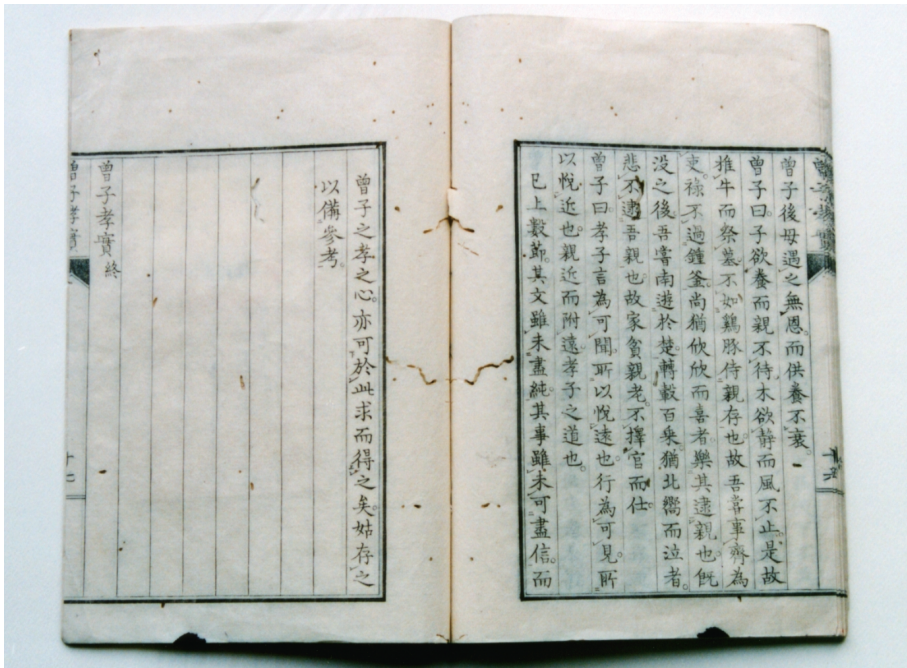 曾子後母遇之無恩而供養不衰
曾子曰子欲養而親不待木欲靜而風不止是故
推牛而祭墓不如鷄豚侍親存也故吾嘗事齊為
吏祿不過鐘釜尚猶欣欣而喜者樂其逮親也既
没之後吾嘗南遊於楚轉轂百乗猶北嚮而泣者
悲不逮吾親也故家貧親老不擇官而仕
曾子曰孝子言為可聞所以悅逺也行為可見所
以悅近也親近而附逺孝子之道也
已上數節其文雖未盡純其事雖未可盡信而
曾子之孝之心亦可於此求而得之矣姑存之
以備參考
曾子孝實 終
曾子孝實